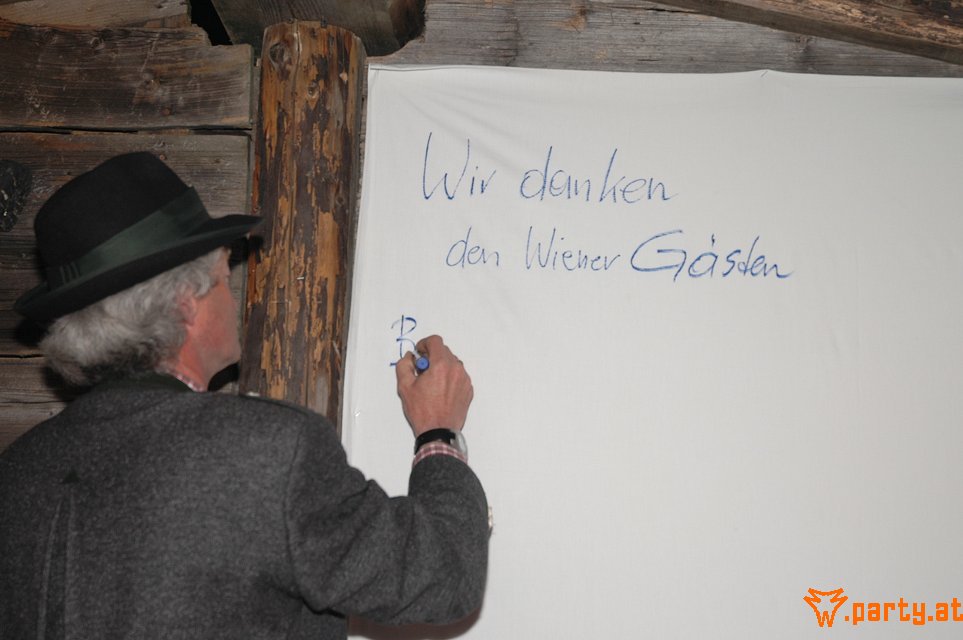 Wir danken
den Wiener Gästen
B
.party.at